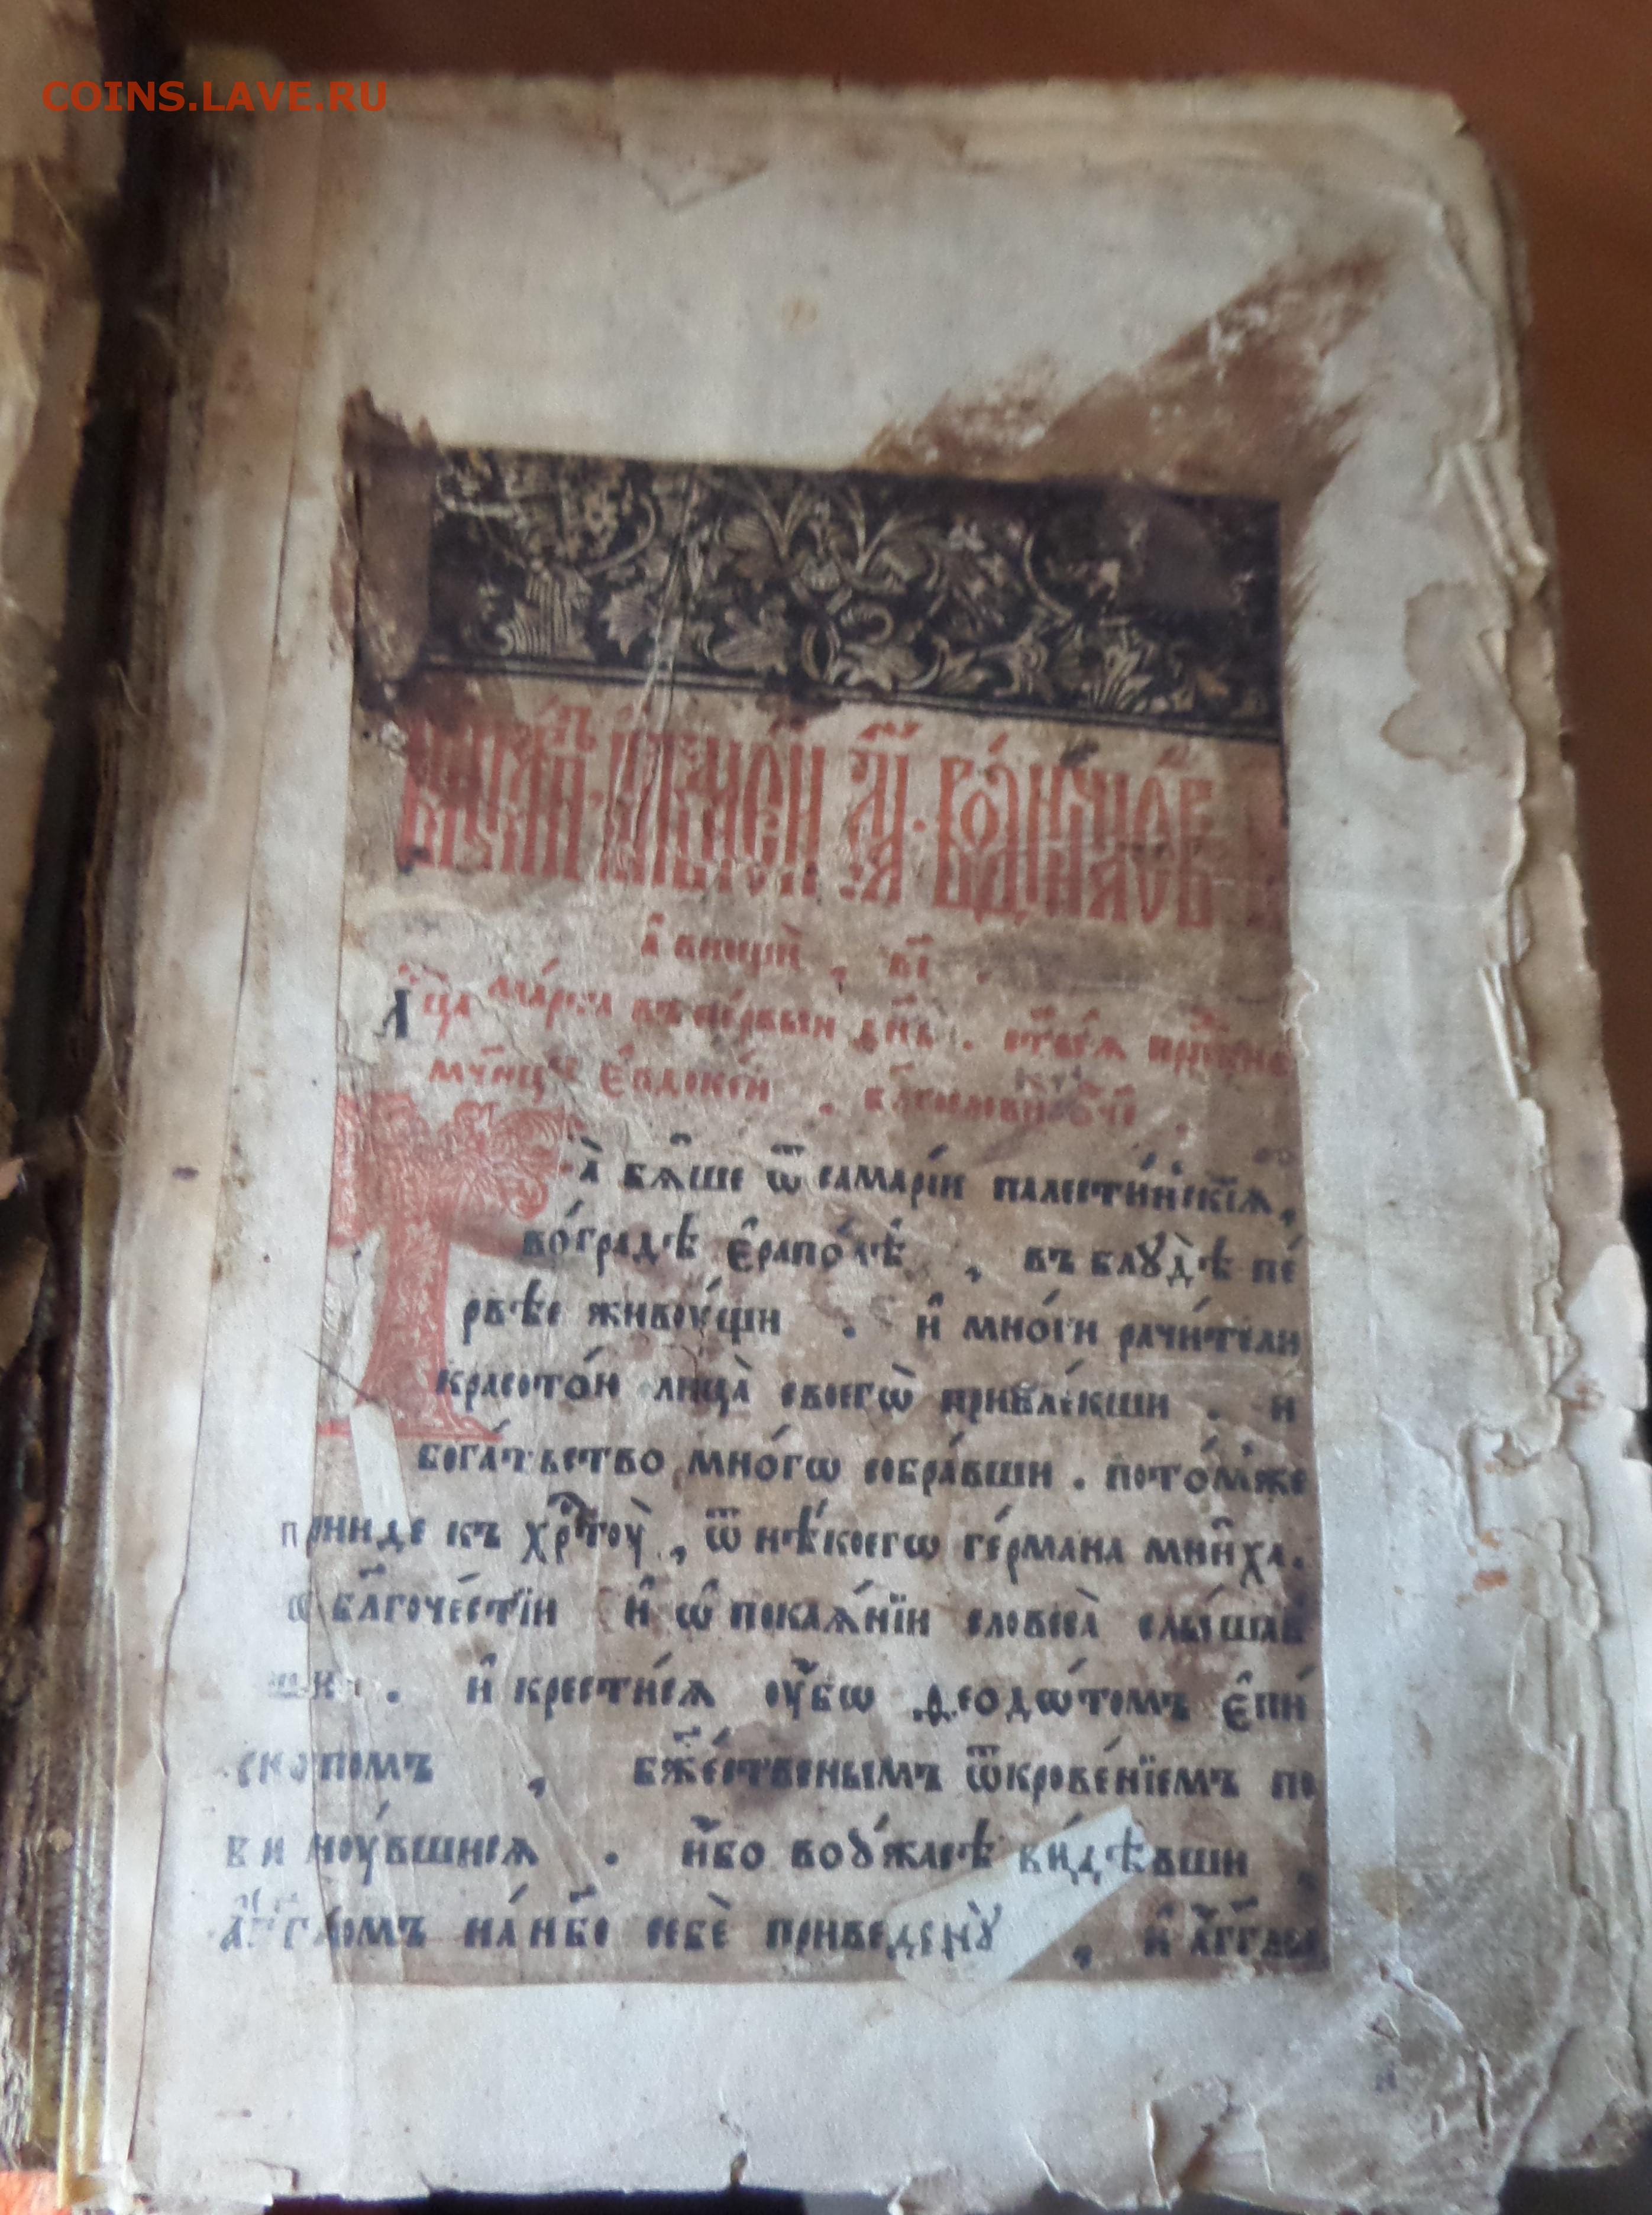 COINS.LAVE.RU
мⷭ҇ца ма́рта въ пе́рвыи дн҃ь . ст҃ы́ѧ
мч҃нцы є҆вдокеи .
а̀ бѧ́ше ѿ самарі́и палести́нскїѧ ,
во́градѣ є҆рапо́лѣ , въ блꙋ́дѣ пе́
рвѣе живоу́щи . и҆ мно́ги рачи́тели
красото́ю лица̀ своегѡ̀ привле́кши . и
бога́тьство мно́гѡ собра́вши . пото́мже
прииде къ хрⷭ҇тоу̀ , ѿ нѣ́коегѡ ге́рмана мни́ха .
ѡ бл҃гоче́стїи и҆ ѡ҆ покаѧ́нїи словеса̀ слы́шав
ши . и҆ крести́сѧ оу҆́бѡ ѳеодѡ́томъ є҆пи́
скопомъ , бж҃е́ственымъ ѿкрове́нїемъ по
виноу́вшисѧ . и҆́бо воꙋ́жасѣ ви́дѣвши ,
а҆́гг҃ломъ на́ нб҃о себѐ приведе́нꙋ , и҆ а҆́гг҃лы